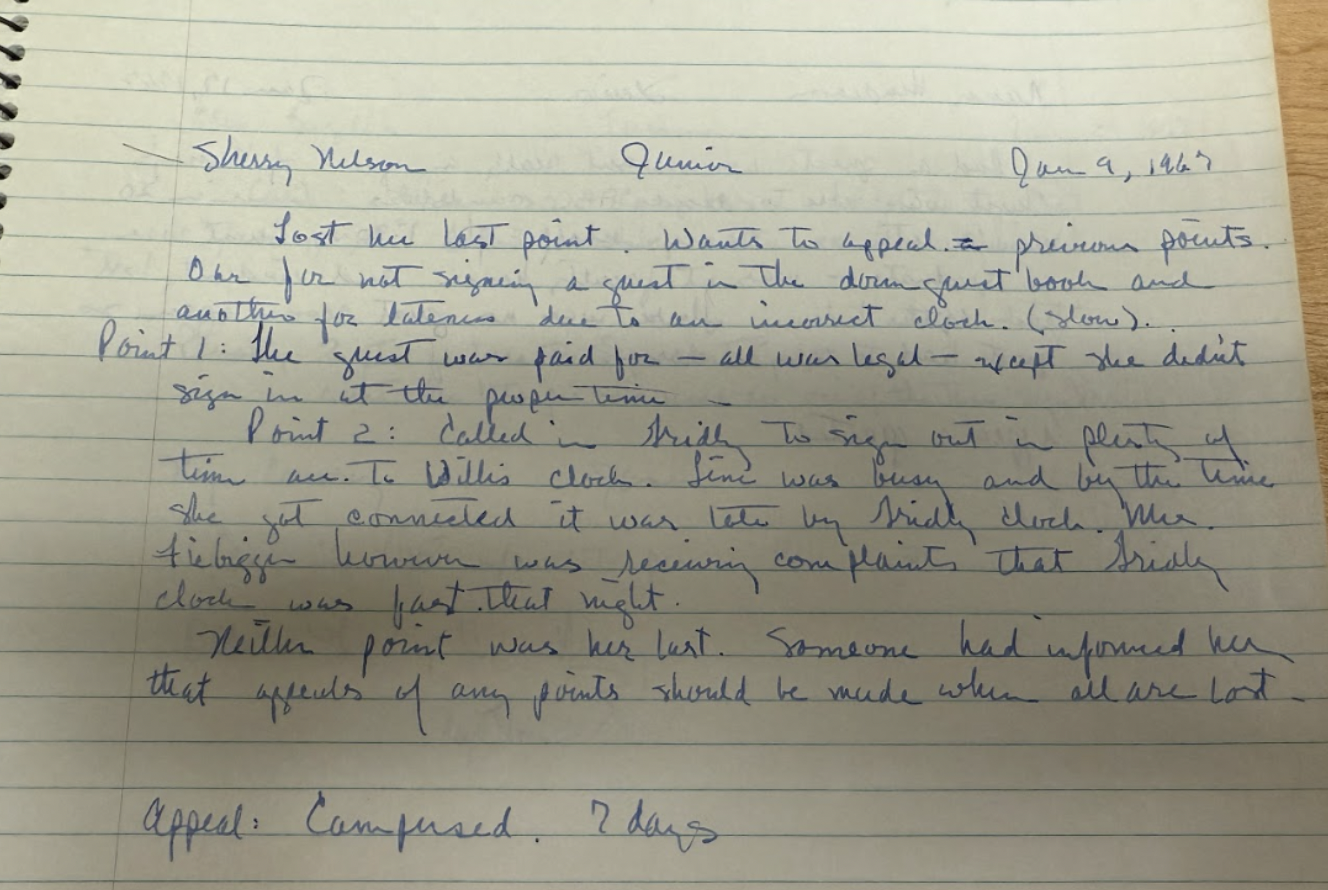 Sherry Nelson Junior Jan 9, 1967
Lost her last point. Wants to appeal 2 previous points.
One for not signing a guest in the dorm guest book and
another for lateness due to an incorrect clock. (slow).
Point 1: The guest was paid for — all was legal — except she didn't
sign in at the proper time —
Point 2: Called in to sign out in plenty of
time acc. to Willis clock. Line was busy and by the time
she got connected it was late by clock. Mrs.
however was receiving complaints that
clock was fast that night.
Neither point was her last. Someone had informed her
that appeals of any points should be made when all are lost —
Appeal: Campused. 7 days